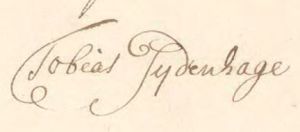 Tobias Tydenhage